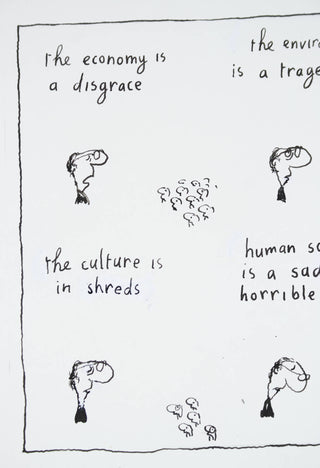 the economy is
a disgrace
the
is a
the culture is
in shreds
human
is a sad
horrible